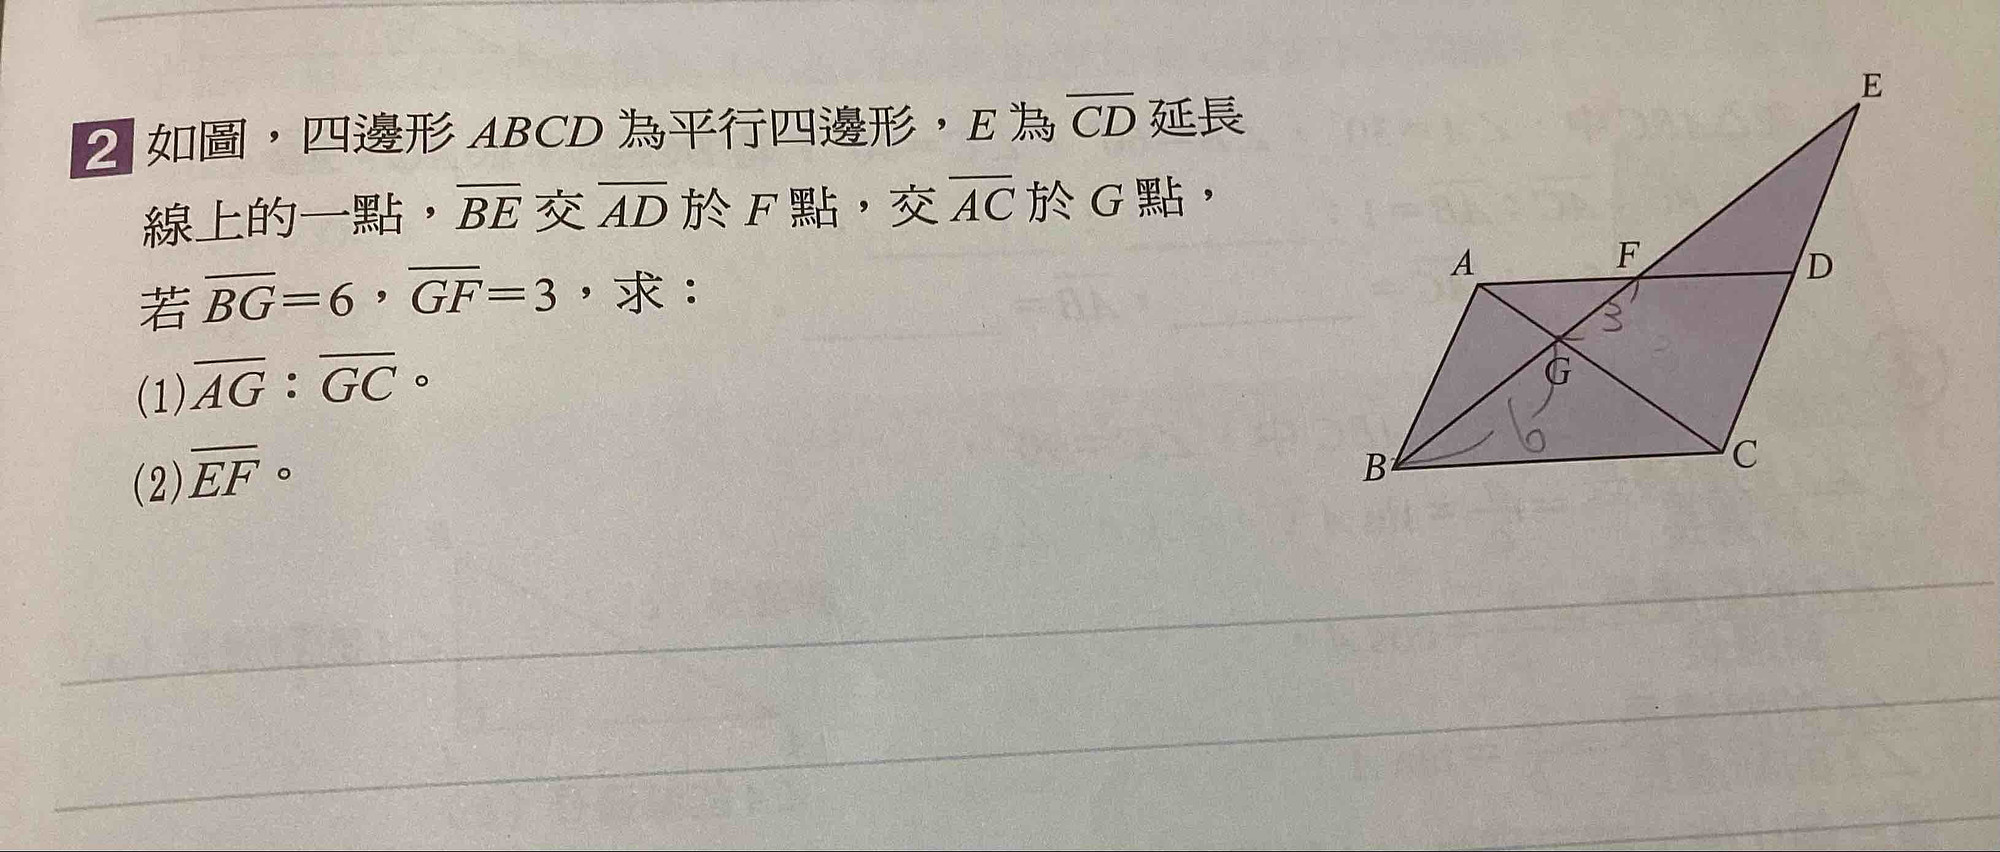 2 如圖，四邊形 ABCD 為平行四邊形，E 為 CD 延長
線上的一點，BE 交 AD 於 F 點，交 AC 於 G 點，
若 BG＝6，GF＝3，求：
(1) AG：GC。
(2) EF。
E
A
F
D
3
G
6
B
C